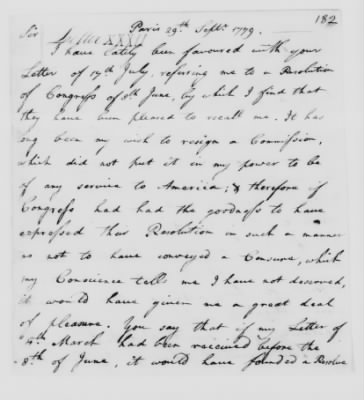 182
Paris 29th. Septr. 1779.
Sir
I have lately been favoured with your
Letter of 17th July, refering me to a Resolution
of Congress of 8th June, by which I find that
they have been pleased to recall me. It has
ong been my wish to resign a Commission,
which did not put it in my power to be
of any service to America; & therefore if
Congress had had the goodness to have
expressed their Resolution in such a manner
as not to have conveyed a Censure, which
my Conscience tells me I have not deserved,
it would have given me a great deal
of pleasure. You say that if my Letter of
4th. March had been received before the
8th of June, it would have founded a Resolve